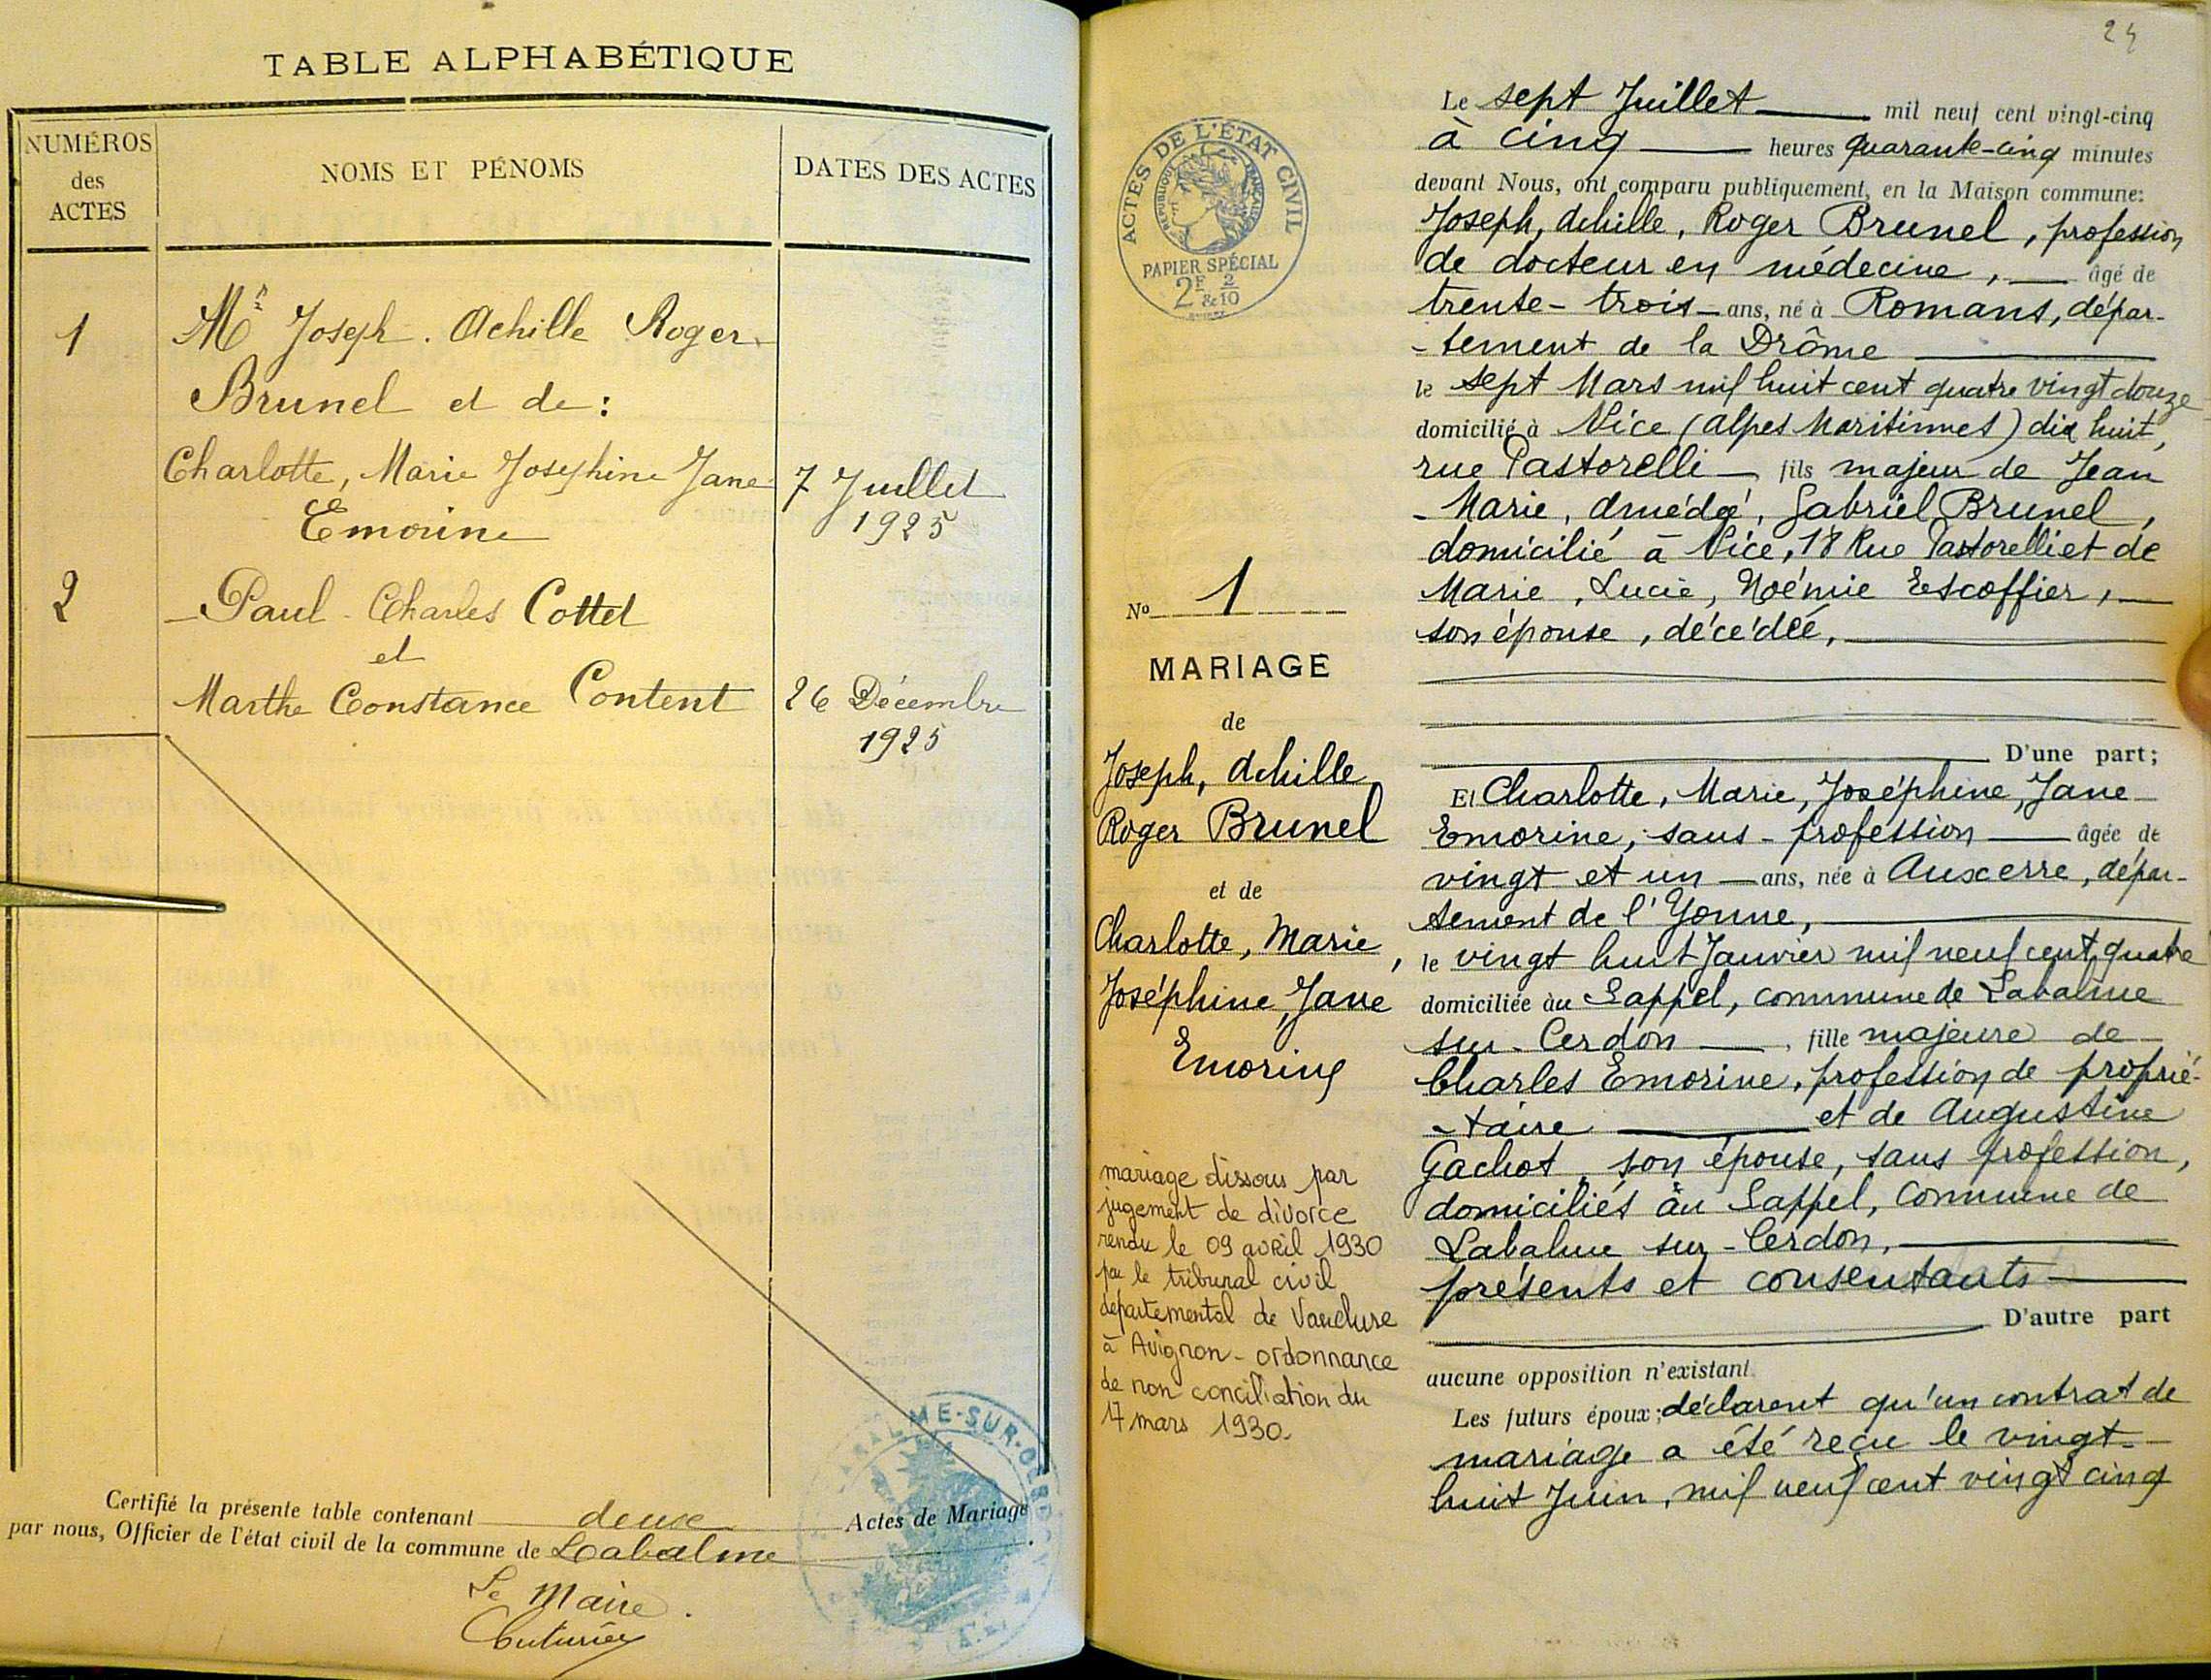 TABLE ALPHABÉTIQUE
NUMÉROS
des
ACTES
NOMS ET PÉNOMS
DATES DES ACTES
1
Mr Joseph. Achille Roger
Brunel et de :
Charlotte, Marie Josephine Jane
7 Juillet
Emorine
1925
2
Paul Charles Cottet
et
Marthe Constance Content
26 Décembre
1925
Certifié la présente table contenant deux Actes de Mariage
par nous, Officier de l'état civil de la commune de Labalme
Le Maire.
24
ACTES DE L'ÉTAT CIVIL
RÉPUBLIQUE FRANÇAISE
PAPIER SPÉCIAL
2F 2
&10
No 1
MARIAGE
de
Joseph, Achille,
Roger Brunel
et de
Charlotte, Marie,
Joséphine, Jane
Emorine
mariage dissous par
jugement de divorce
rendu le 09 avril 1930
par le tribunal civil
départemental de Vaucluse
à Avignon - ordonnance
de non conciliation du
17 mars 1930.
Le sept Juillet mil neuf cent vingt-cinq
à cinq heures quarante-cinq minutes
devant Nous, ont comparu publiquement, en la Maison commune:
Joseph, Achille, Roger Brunel, profession
de docteur en médecine, âgé de
trente-trois ans, né à Romans, dépar-
-tement de la Drôme
le sept Mars mil huit cent quatre vingt douze
domicilié à Nice (Alpes Maritimes) dix huit,
rue Pastorelli, fils majeur de Jean
-Marie, Amédée, Gabriel Brunel,
domicilié à Nice, 18 Rue Pastorelli et de
Marie, Lucie, Noémie Escoffier,
son épouse, décédée,
D'une part;
Et Charlotte, Marie, Joséphine, Jane
Emorine, sans-profession âgée de
vingt et un ans, née à Auxerre, dépar-
tement de l'Yonne,
le vingt huit Janvier mil neuf cent quatre
domiciliée au Sappel, commune de Labalme
sur-Cerdon, fille majeure de
Charles Emorine, profession de proprié-
-taire et de Augustine
Gachot, son épouse, sans profession,
domiciliés au Sappel, commune de
Labalme sur-Cerdon,
présents et consentants
D'autre part
aucune opposition n'existant.
Les futurs époux; déclarent qu'un contrat de
mariage a été reçu le vingt-
huit Juin, mil neuf cent vingt cinq